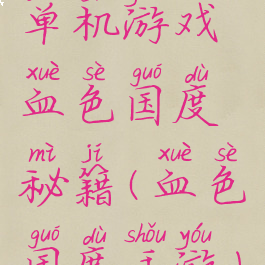 单机游戏
xuè sè guó dù
血色国度
mì jí xuè sè
秘籍(血色
guó dù shǒu yóu
国度手游)